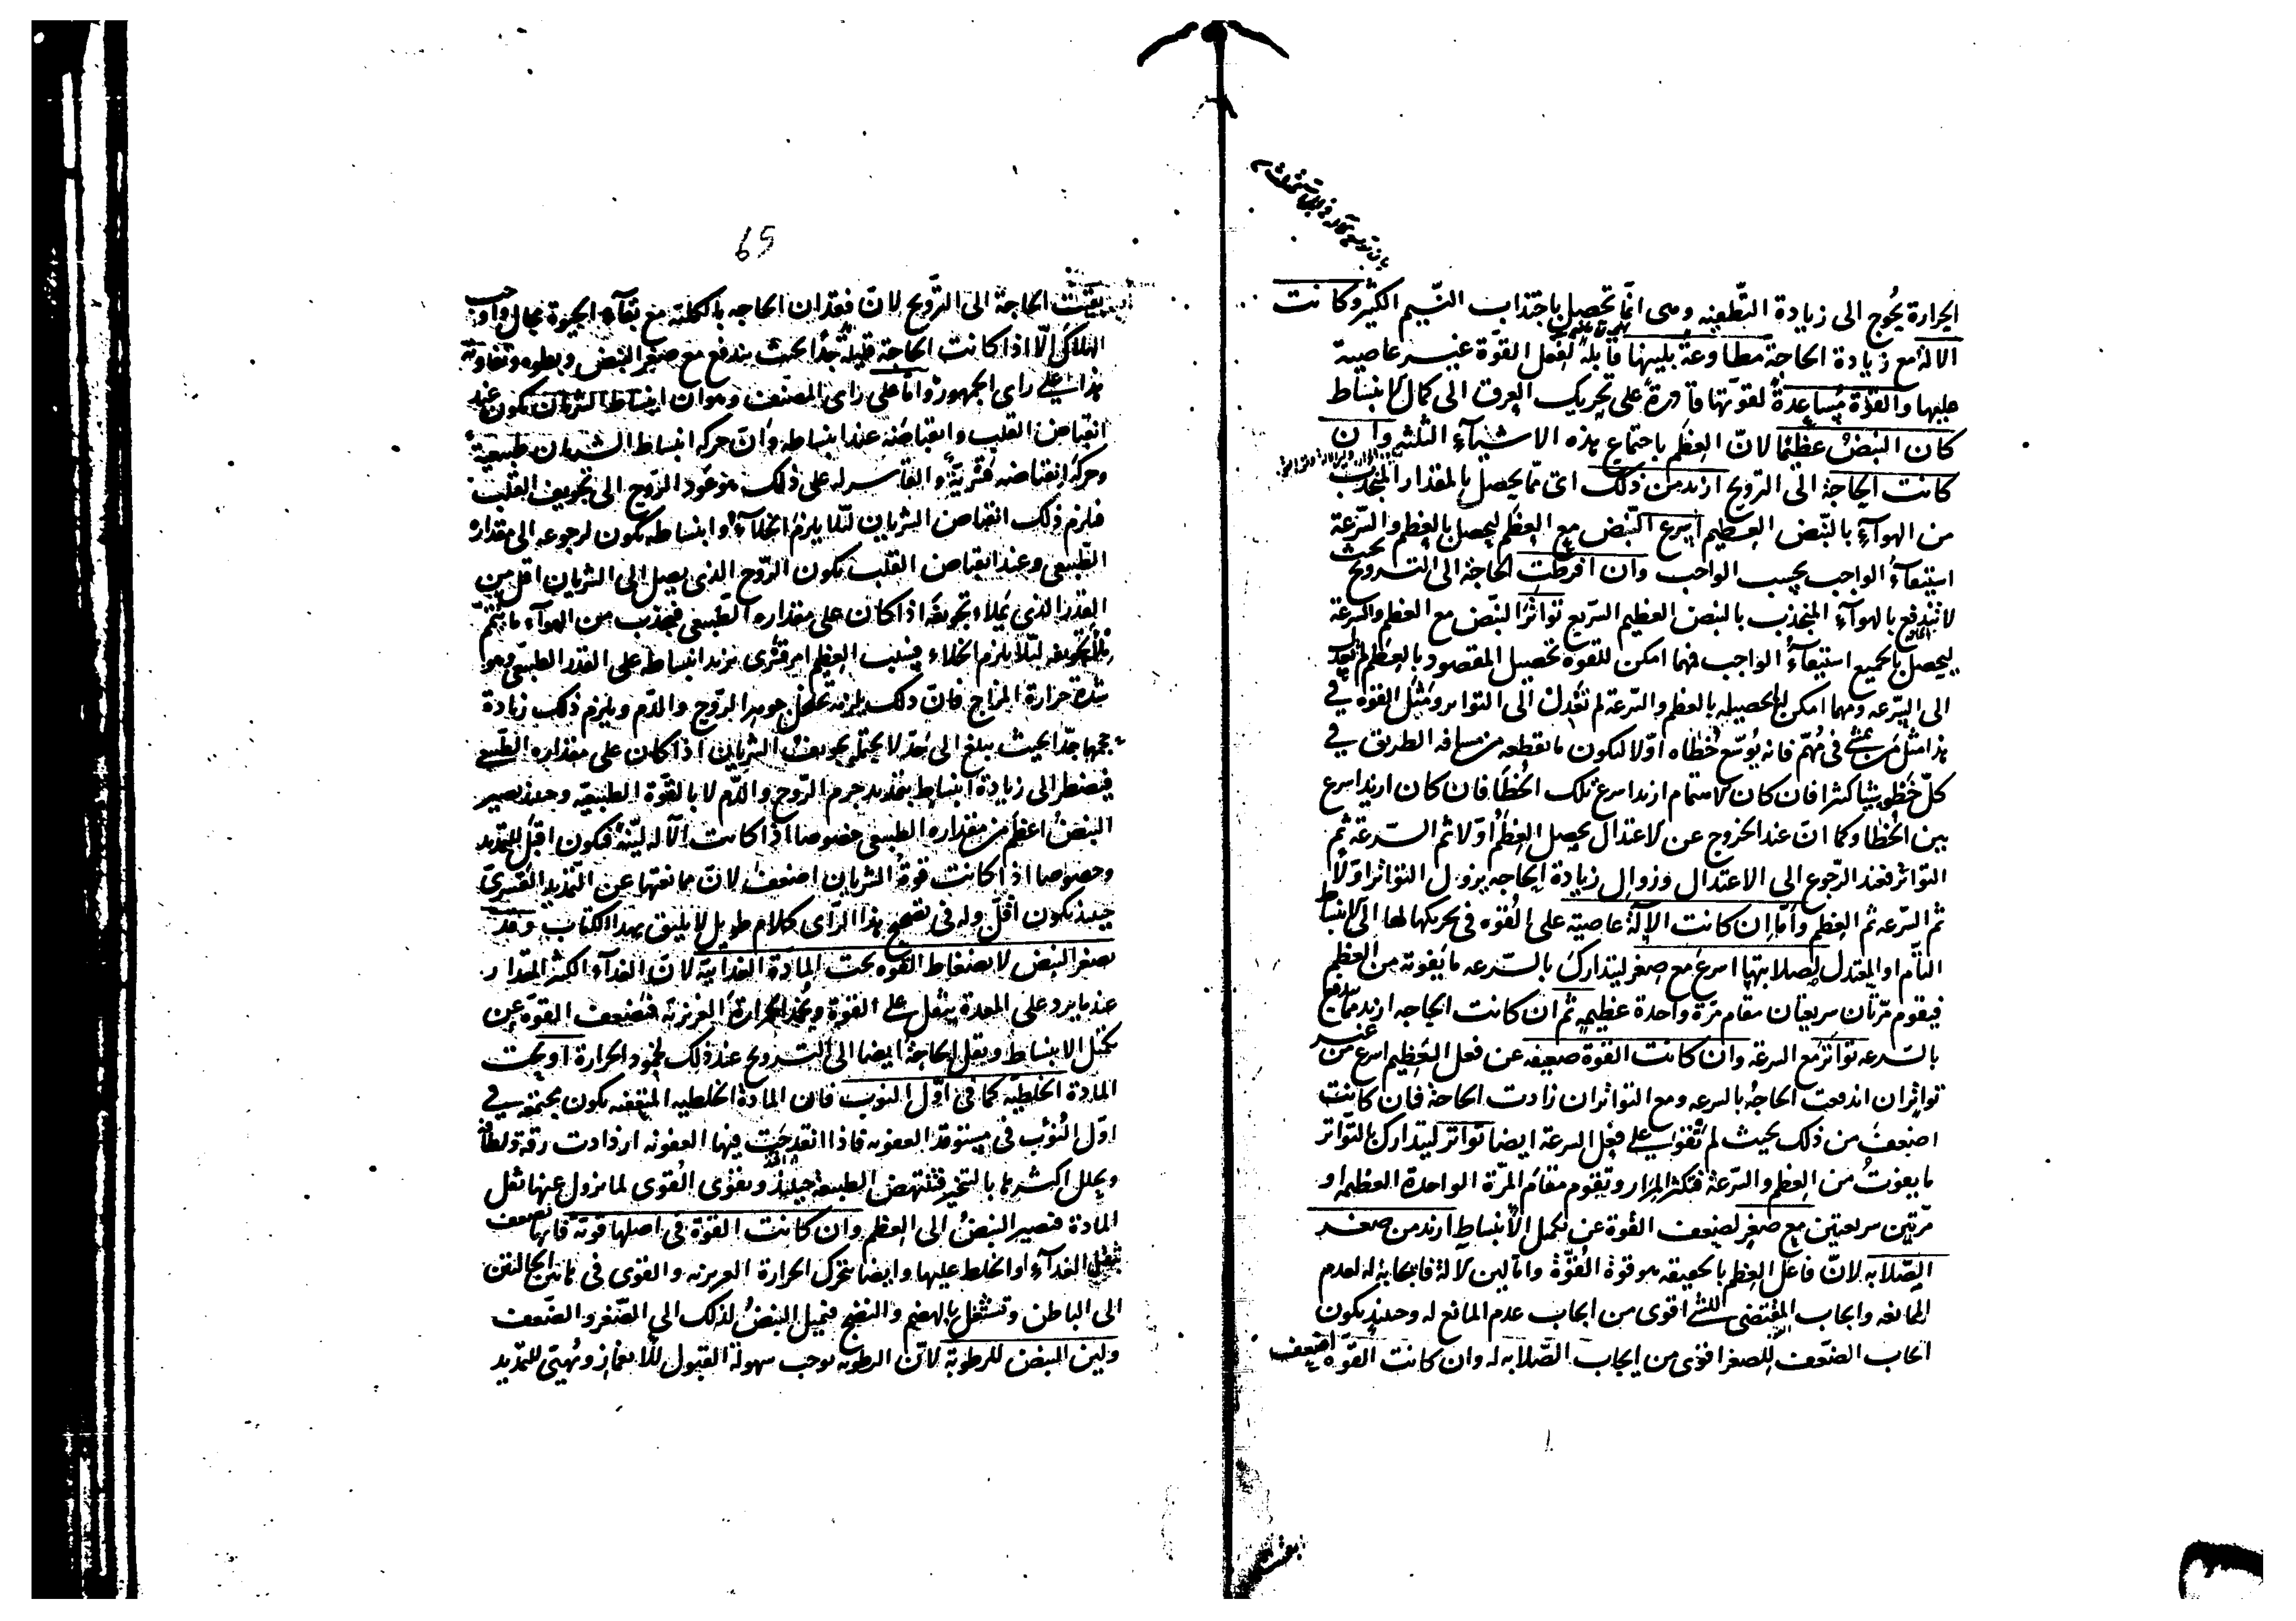 الحرارة يُحوج الى زيادة التطفيه وهى انّما تحصل باجتذاب النّسيم الكثير وكانت
الالة مع زيادة الحاجة مطاوعة بلينها قابلة لفعل القوّة غير عاصية
عليها والقوّة مُساعِدة لقوّتها قادرة على تحريك العرق الى كمال الانبساط
كان النبضُ عظيمًا لانّ العِظَم باجتماع هذه الاشيآء الثلثة وان
كانت الحاجة الى الترويح ازيد من ذلك اى ممّا يحصل بالمقدار المنجذب
من الهوآء بالنّبض العظيم اسرع النّبض مع العِظَم ليحصل بالعِظم والسّرعة
استيفآءُ الواجب بحسب الواجب وان افرطت الحاجة الى الترويح بحيث
لا تندفع بالهوآء المنجذب بالنبض العظيم السّريع تواتَرَ النّبض مع العظم والسرعة
ليحصل بالجميع استيفآءُ الواجب فمهما امكن للقوة تحصيل المقصود بالعِظَم لم تعدل
الى السّرعه ومهما امكن لها تحصيله بالعظم والسّرعة لم تَعْدِل الى التواتر ومَثَل القوة فى
هذا مثل مَن يمشى فى مُهمّ فانه يُوسّع خُطاه اوّلا ليكون ما يقطعه من مسافة الطريق فى
كلّ خَطْو شيئا كثيرا فان كان الاهتمام ازيد اسرع تلك الخُطَا فان كان ازيد اسرع
بين الخُطا وكما انّ عند الخروج عن الاعتدال يحصل العِظَمُ اوّلا ثم السّرعة ثم
التواتر فعند الرّجوع الى الاعتدال وزوال زيادة الحاجه يزول التواتر اوّلا
ثم السّرعه ثم العِظَم وامّا ان كانت الالة عاصية على القوّه فى تحريكها لها الى الانبساط
التآم او المعتدل لصلابتها اسرع مع صِغر ليتدارك بالسّرعه ما يفوته من العِظَم
فيقوم مرّتان سريعتان مقام مرّة واحدة عظيمة ثم ان كانت الحاجه ازيد مما يندفع
بالسّرعه تواتر مع السرعة وان كانت القوة ضعيفه عن فعل العَظيم اسرع من غير
تواتر ان اندفعت الحاجة بالسرعه ومع التواتر ان زادت الحاجة فان كانت
اضعفَ من ذلك بحيث لم تَقْوَ على فعل السرعة ايضا تواتر ليتدارك بالتواتر
ما يفوتُ من العِظم والسّرعة فتكثر المِرار وتقوم مقام المرّة الواحدة العظيمه او
مرّتين سريعتين مع صِغر لضعف القوة عن تكميل الانبساط ازيد من صغر
الصّلابه لانّ فاعل العِظم بالحقيقه هو قوة القُوّة واما لين الالة فايجابه له لعدم
الممانعه وايجاب المقتضى للشئ اقوى من ايجاب عدم المانع له وحينئذ يكون
ايجاب الضّعف للصغر اقوى من ايجاب الصّلابه له وان كانت القوّة اضعف
65
بقيت الحاجة الى التّرويح لانّ فقدان الحاجه بالكليّه مع بقآء الحيوة محال واوجب
الهلاك الّا اذا كانت الحاجة قليلة جدًا بحيث يندفع مع صغر النبض وبطوه وتفاوته
هذا على راى الجمهور وامّا على راى المصنّف وهو ان انبساط الشريان يكون عند
انقباض القلب وانقباضه عند انبساطه وانّ حركه انبساط الشريان طبيعية
وحركة انقباضه قسْريّة والقاسر له على ذلك هو عَود الرّوح الى تجويف القلب
فيلزم ذلك انقباض الشريان لئلّا يلزم الخلآء وانبساطه يكون لرجوعه الى مقداره
الطّبيعى وعند انقباض القلب يكون الرّوح الذى يصل الى الشريان اقل من
القدر الذى يملاء تجويفه اذا كان على مقداره الطّبيعى فيجذب من الهوآء ما يتمّم
تجويفه لئلّا يلزم الخلاء فسبب العِظم امر قَسْرى يزيد انبساط على القدر الطبيعى وهو
شدة حرارة المزاج فانّ ذلك يلزمه تخلخل جوهر الرّوح والدّم ويلزم ذلك زيادة
حجمها جدّا بحيث يبلغ الى حَدّ لا يحتمله تجويف الشريان اذا كان على مقداره الطّبيعى
فيضطر الى زيادة انبساط بتمديد جرم الرّوح والدّم لا بالقوّة الطبيعيّه وحينئذ يصير
النبضُ اعظم من مقداره الطبيعى خصوصا اذا كانت الآلة ليّنة فيكون اقبل للتمديد
وخصوصا اذا كانت قوة الشريان اضعف لانّ ممانعتها عن التمديد القسْرىّ
حينئذ يكون اقلّ وله فى تصحيح هذا الرّاى كلام طويل لا يليق بهذا الكتاب وقد
يصغر النبض لانضغاط القوه تحت المادة الغذائية لانّ الغذآء الكثير المقدار
عند ما يرد على المعدة يثقل على القوّة ويُخمد الحرارةَ الغريزيّه فتضعف القوّة عن
تكميل الانبساط ويقل الحاجة ايضا الى الترويح عند ذلك لخمود الحرارة او تحت
المادة الخلطيّه كما فى اوّل النوب فان المادة الخلطيه المتعفنه يكون مجتمعة فى
اوّل النُوَب فى مستوقد العفونه فاذا انقدحَت فيها العفونه ازدادت رقة ولطافة
وتحلل اكثرها بالتبخير فتنهض الطبيعة حينئذ وتقوى القُوى لما يزول عنها ثقل
المادة فيصير النبضُ الى العِظم وان كانت القوّة فى اصلها قوية فانها تضعف
بثقل الغذآء او الخلط عليها وايضا يتحرّك الحرارة الغريزيه والقوى فى هاتين الحالتين
الى الباطن وتشتغل بالهضم والنضج فيميل النبضُ لذلك الى الصّغر والضّعف
ولين النبض للرطوبة لانّ الرطوبه توجب سهولة القبول للانغماز وتُهيّى للتمديد